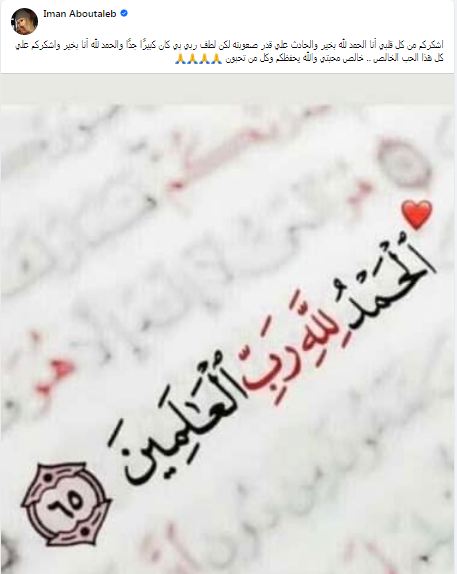 Iman Aboutaleb
اشكركم من كل قلبي أنا الحمد لله بخير والحادث علي قدر صعوبته لكن لطف ربي بي كان كبيرًا جدًا والحمد لله أنا بخير واشكركم علي
كل هذا الحب الخالص .. خالص محبتي والله يحفظكم وكل من تحبون 🙏🙏🙏🙏
ٱلْحَمْدُ لِلَّهِ رَبِّ ٱلْعَـٰلَمِينَ ٦٥